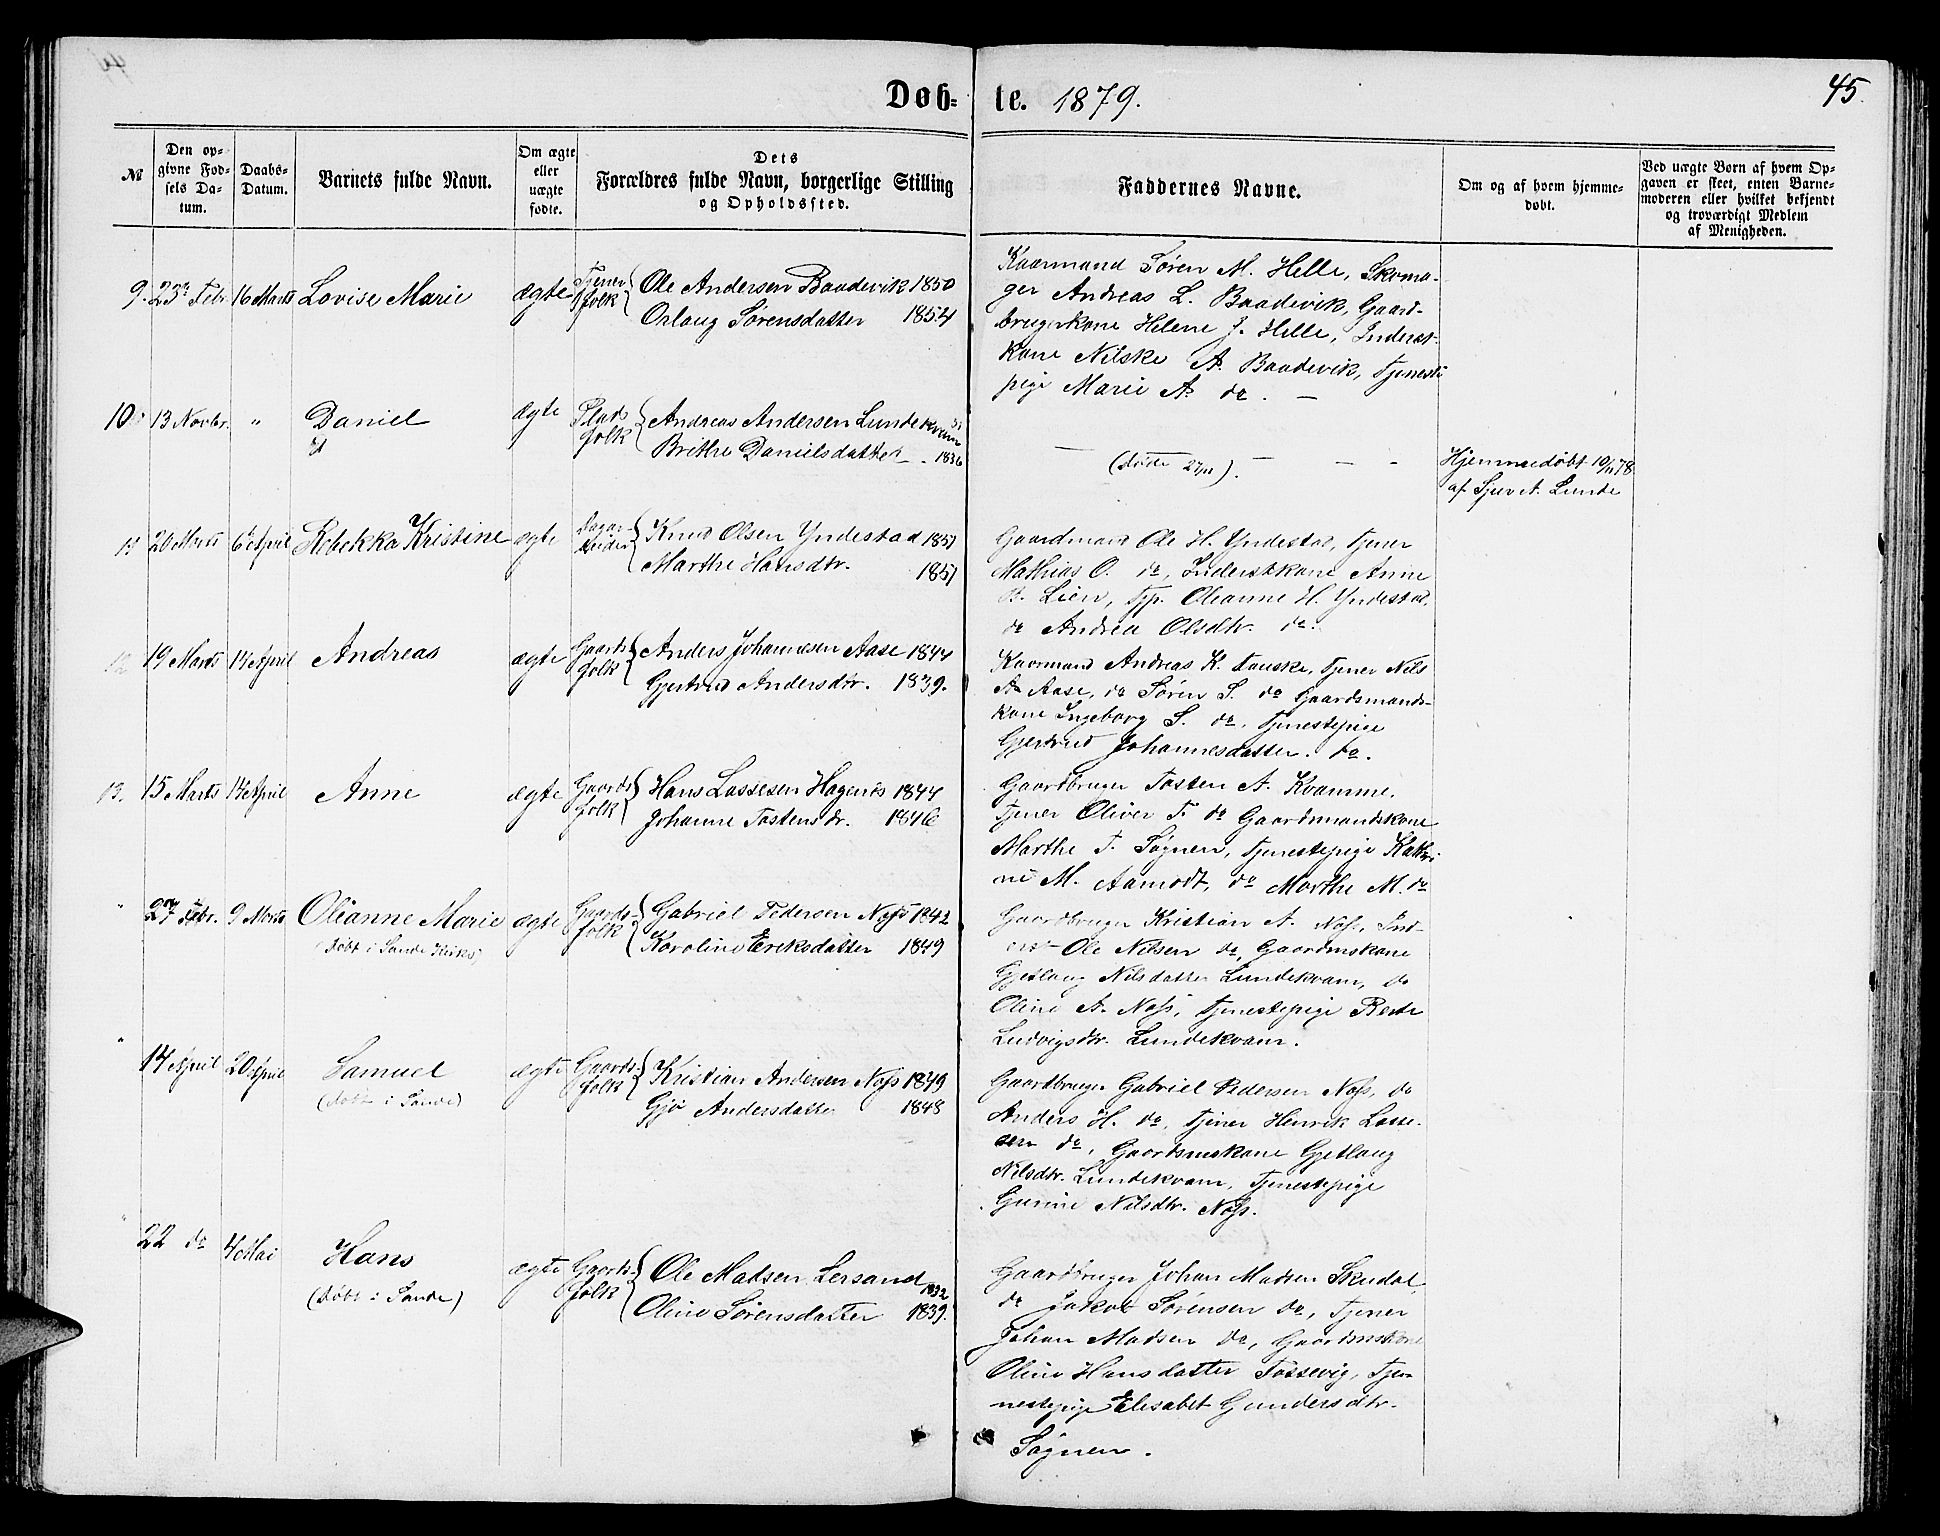 Døb-
te. 1879.
45.
№
Den op-
givne Fød-
sels Da-
tum.
Daabs-
Datum.
Barnets fulde Navn.
Om ægte
eller
uægte
fødte.
Dets
Forældres fulde Navn, borgerlige Stilling
og Opholdssted.
Faddernes Navne.
Om og af hvem hjemme-
døbt.
Ved uægte Børn af hvem Op-
gaven er skeet, enten Barne-
moderen eller hvilket bekjendt
og troværdigt Medlem
af Menigheden.
9. 23 Febr. 16 Marts Lovise Marie ægte Tjener-
folk
Ole Andersen Baadevik 1850
Oslaug Sørensdatter 1854
Kaarmand Søren M. Helle, Skoma-
ger Andreas L. Baadevik, Gaard-
brugerkone Helene J. Helle, Inderst-
kone Nilske A. Baadevik, Tjeneste
pige Marie A. do. —
10. 13 Novbr. " Daniel ægte Plads
folk
Andreas Andersen Lundekvam
Brithe Danielsdatter 1836
(døde 27/11).
Hjemmedøbt 19/11 78
af Sjur A. Lunde
11 20 Marts 6 April Rebekka Kristine ægte
Knud Olsen Yndestad 1851
Marthe Hansdtr. 1851
Gaardmand Ole H. Yndestad, Tjener
Mathias O. do, Inderstkone Anne
Lien, Tjp. Oleanne H. Yndestad,
do Andrea Olsdtr. do.
12 19 Marts 14 April Andreas ægte Gaards
folk
Anders Johannesen Aase 1844
Gjertrud Andersdtr. 1839.
Kaarmand Andreas K. Tauske, Tjener Nils
A. Aase, do Søren S. do Gaardsmands-
kone Ingeborg S. do, Tjenestepige
Gjertrud Johannesdatter. do.
13. 15 Marts 14 April Anne ægte Gaards
folk
Hans Lassesen Hagenæs 1844
Johanne Tostensdr. 1846
Gaardbruger Tosten A. Kvamme,
Tjener Oliver T. do Gaardmandskone
Marthe T. Søgnen, Tjenestepige Kathri
ne M. Aamodt, do Marthe M. do
" 27 Febr. 9 Marts Olianne Marie ægte Gaards-
folk
(døbt i Sande Kirke)
Gabriel Pedersen Næss 1842
Karoline Eriksdatter 1849
Gaardbruger Kristian A. Næss, Ind-
erst Ole Nilsen do, Gaardmskone
Gjetlaug Nilsdatter Lundekvam, do
Oline A. Næss, Tjenestepige Berte
Ludvigsdtr. Lundekvam.
" 14 April 20 April Samuel ægte Gaards-
folk
(døbt i Sande)
Kristian Andersen Næss 1849
Gjøe Andersdatter 1848
Gaardbruger Gabriel Pedersen Næss, do
Anders H. do, Tjener Henrik Lasse-
sen do, Gaardsmskone Gjetlaug
Nilsdtr. Lundekvam, Tjenestepige
Gurine Nilsdtr. Næss.
" 22 do 4 Mai Hans ægte Gaards-
folk
(døbt i Sande)
Ole Madsen Lersand 1832
Oline Sørensdatter 1839.
Gaardbruger Johan Madsen Skudal,
do Jakob Sørensen do, Tjener
Johan Madsen do, Gaardmskone
Oline Hansdatter Tossevig, Tje-
nestepige Elisabet Gundersdtr.
Søgnen.